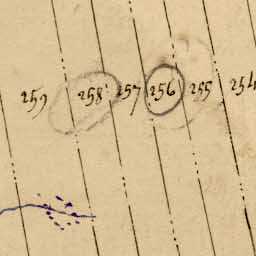 259 258 257 256 255 254